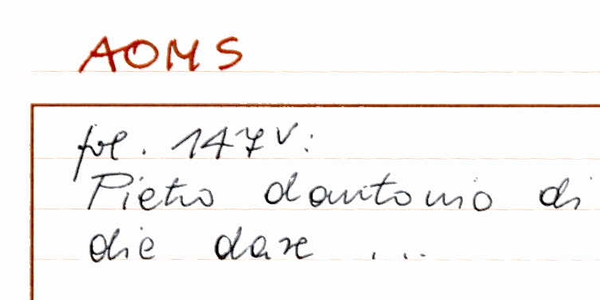 AOMS
fol. 147v:
Pietro dantonio di
die dare ...